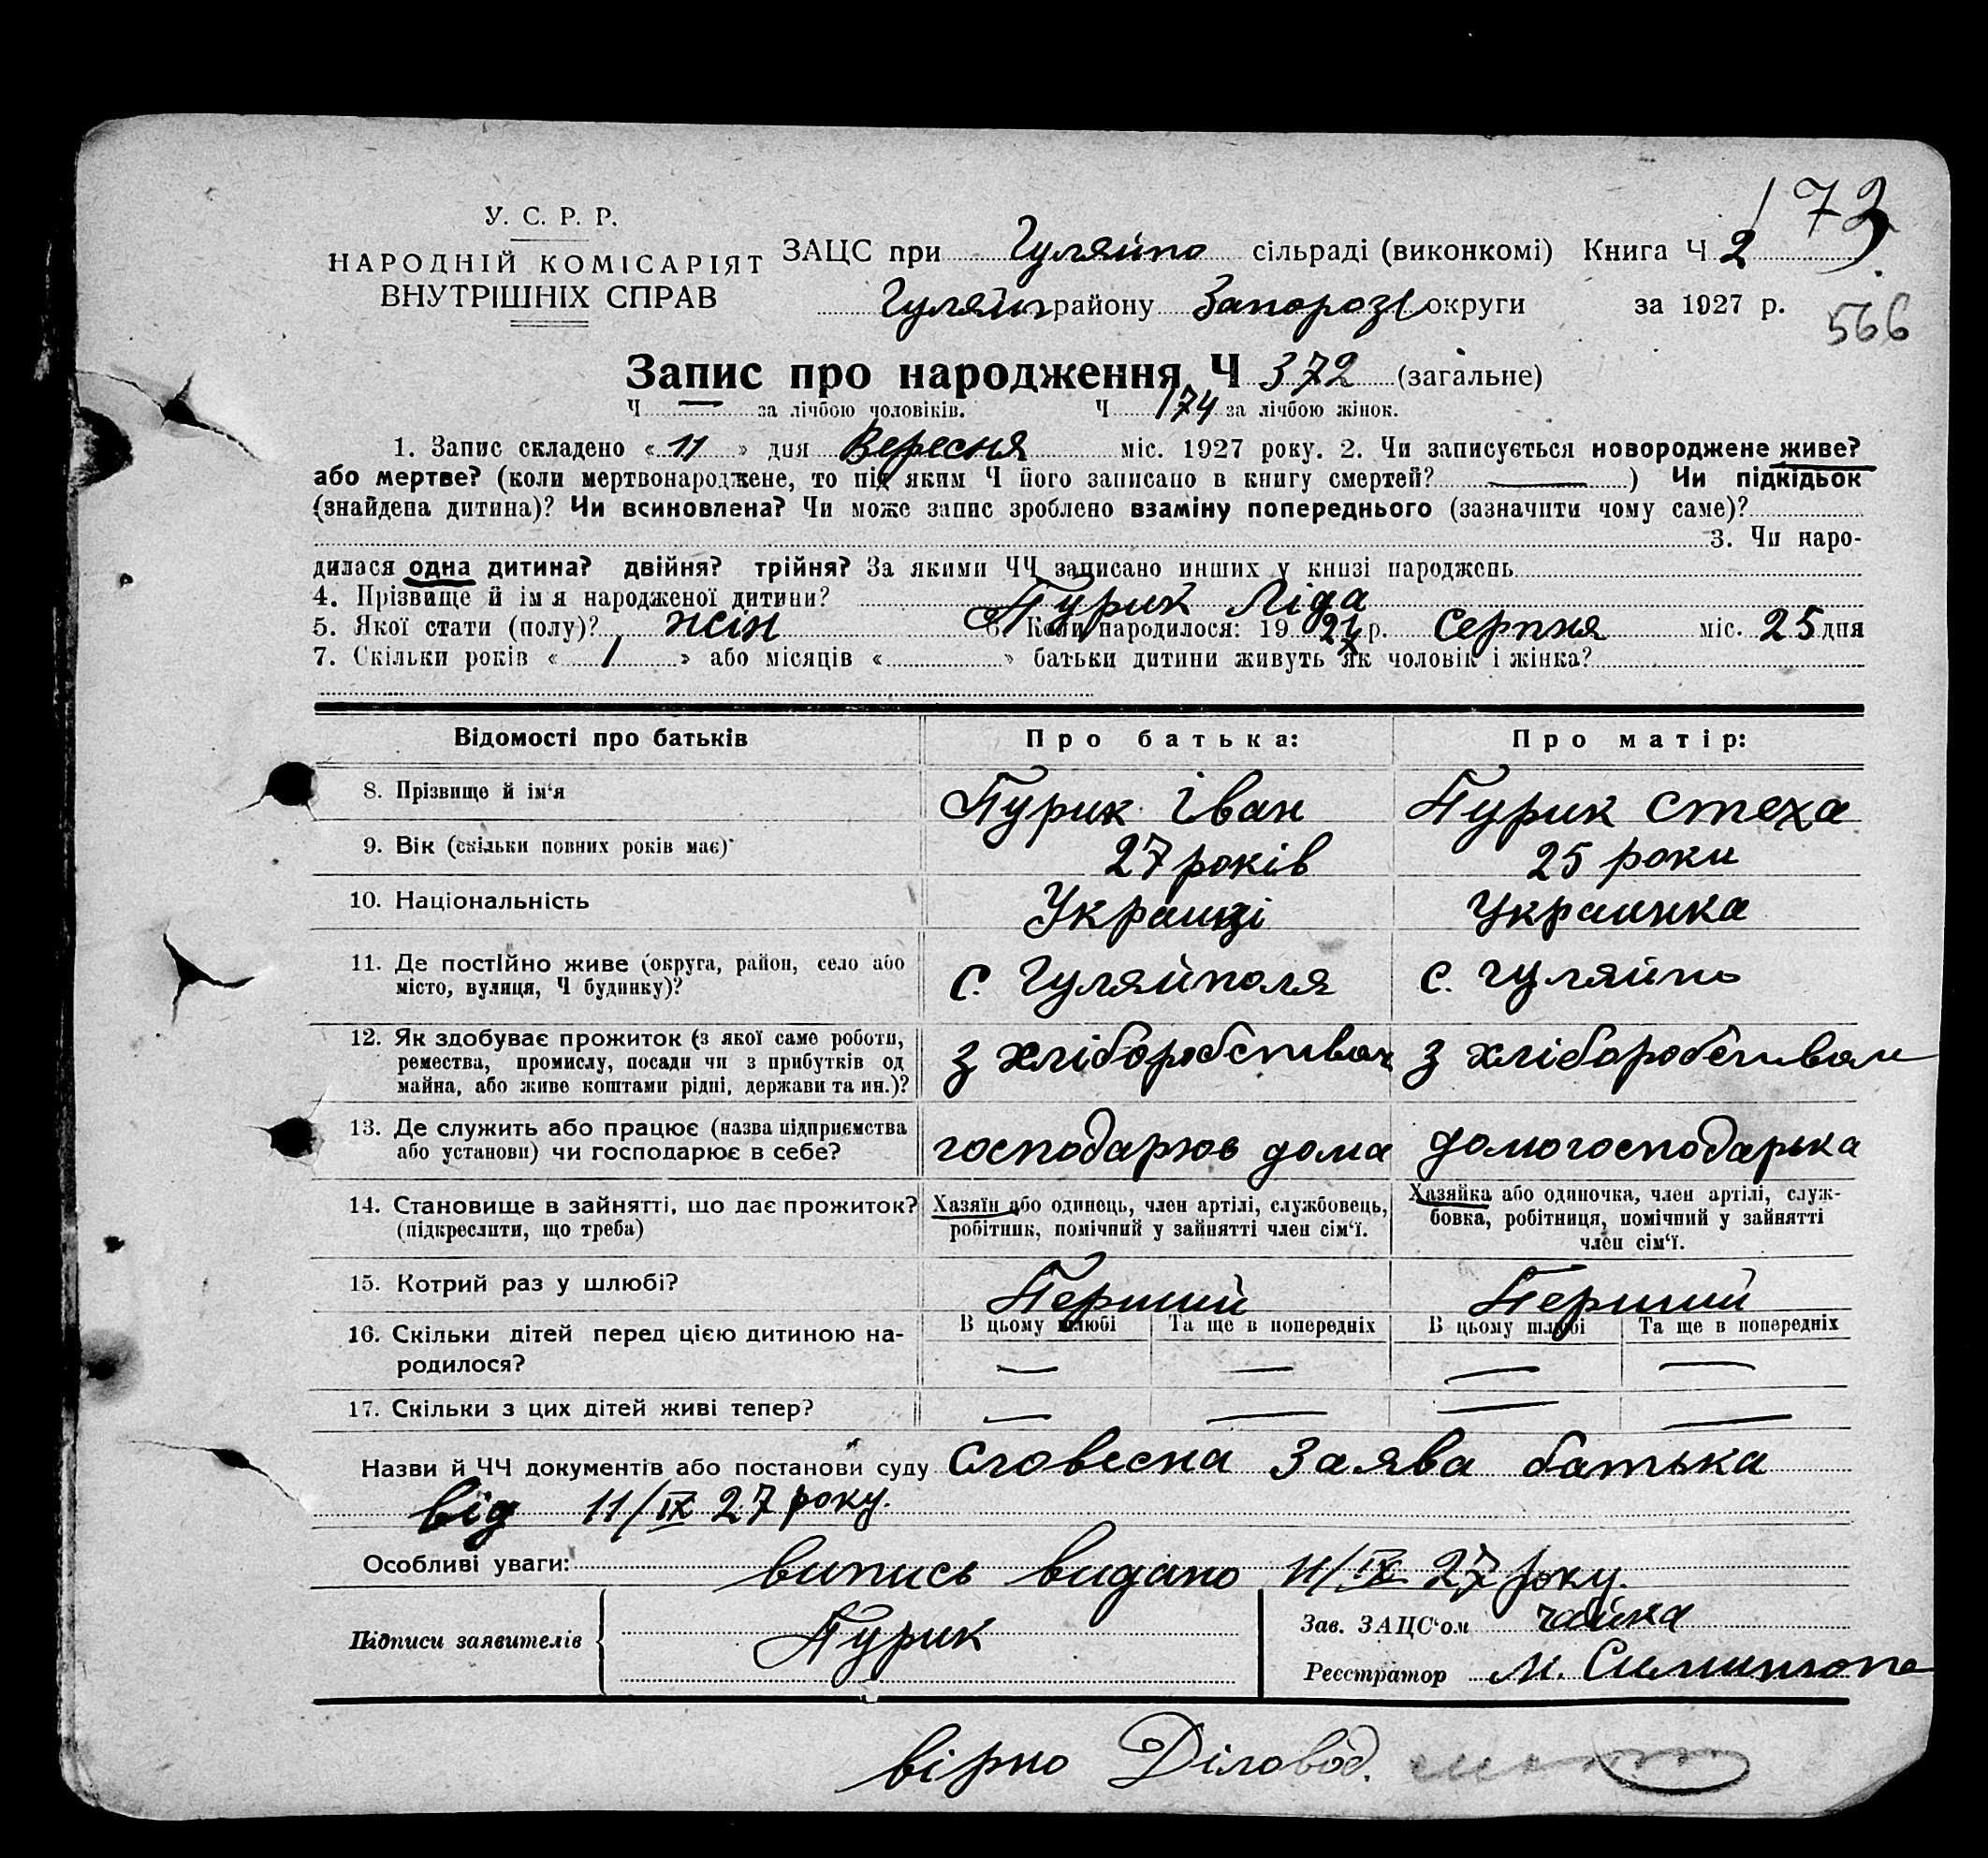 173
У. С. Р. Р.
НАРОДНІЙ КОМІСАРІЯТ
ВНУТРІШНІХ СПРАВ
ЗАЦС при Гуляйпо сільраді (виконкомі) Книга Ч 2
Гуляйп району Запорозь округи за 1927 р.
566
Запис про народження Ч 372 (загальне)
Ч — за лічбою чоловіків. Ч 174 за лічбою жінок.
1. Запис складено « 11 » дня Вересня міс. 1927 року. 2. Чи записується новороджене живе?
або мертве? (коли мертвонароджене, то під яким Ч його записано в книгу смертей? — ) Чи підкідьок
(знайдена дитина)? Чи всиновлена? Чи може запис зроблено взаміну попереднього (зазначити чому саме)?
3. Чи наро-
дилася одна дитина? двійня? трійня? За якими ЧЧ записано инших у книзі народжень
4. Прізвище й імя народженої дитини? Пурик Ліда
5. Якої стати (полу)? жін 6. Коли народилося: 19 27 р. Серпня міс. 25 дня
7. Скільки років « 1 » або місяців « » батьки дитини живуть як чоловік і жінка?
Відомості про батьків Про батька: Про матір:
8. Прізвище й ім'я Пурик Іван Пурик Стеха
9. Вік (скільки повних років має) 27 років 25 роки
10. Національність Украинці Украинка
11. Де постійно живе (округа, район, село або
місто, вулиця, Ч будинку)? с. Гуляйполя с. Гуляйпо
12. Як здобуває прожиток (з якої саме роботи,
ремества, промислу, посади чи з прибутків од
майна, або живе коштами рідні, держави та ин.)? з хліборобством з хліборобством
13. Де служить або працює (назва підприємства
або установи) чи господарює в себе? господарює дома домогосподарька
14. Становище в зайнятті, що дає прожиток?
(підкреслити, що треба)
Хазяїн або одинець, член артілі, службовець,
робітник, помічний у зайнятті член сім'ї.
Хазяйка або одиночка, член артілі, служ-
бовка, робітниця, помічний у зайнятті
член сім'ї.
15. Котрий раз у шлюбі? Перший Перший
16. Скільки дітей перед цією дитиною на-
родилося?
В цьому шлюбі Та ще в попередніх В цьому шлюбі Та ще в попередніх
— — — —
17. Скільки з цих дітей живі тепер? — — — —
Назви й ЧЧ документів або постанови суду Словесна Заява батька
від 11/IX 27 року.
Особливі уваги: випись видано 11/IX 27 року.
Підписи заявителів Пурик
Зав. ЗАЦС'ом Чайка
Реєстратор М.
вірно Діловод.